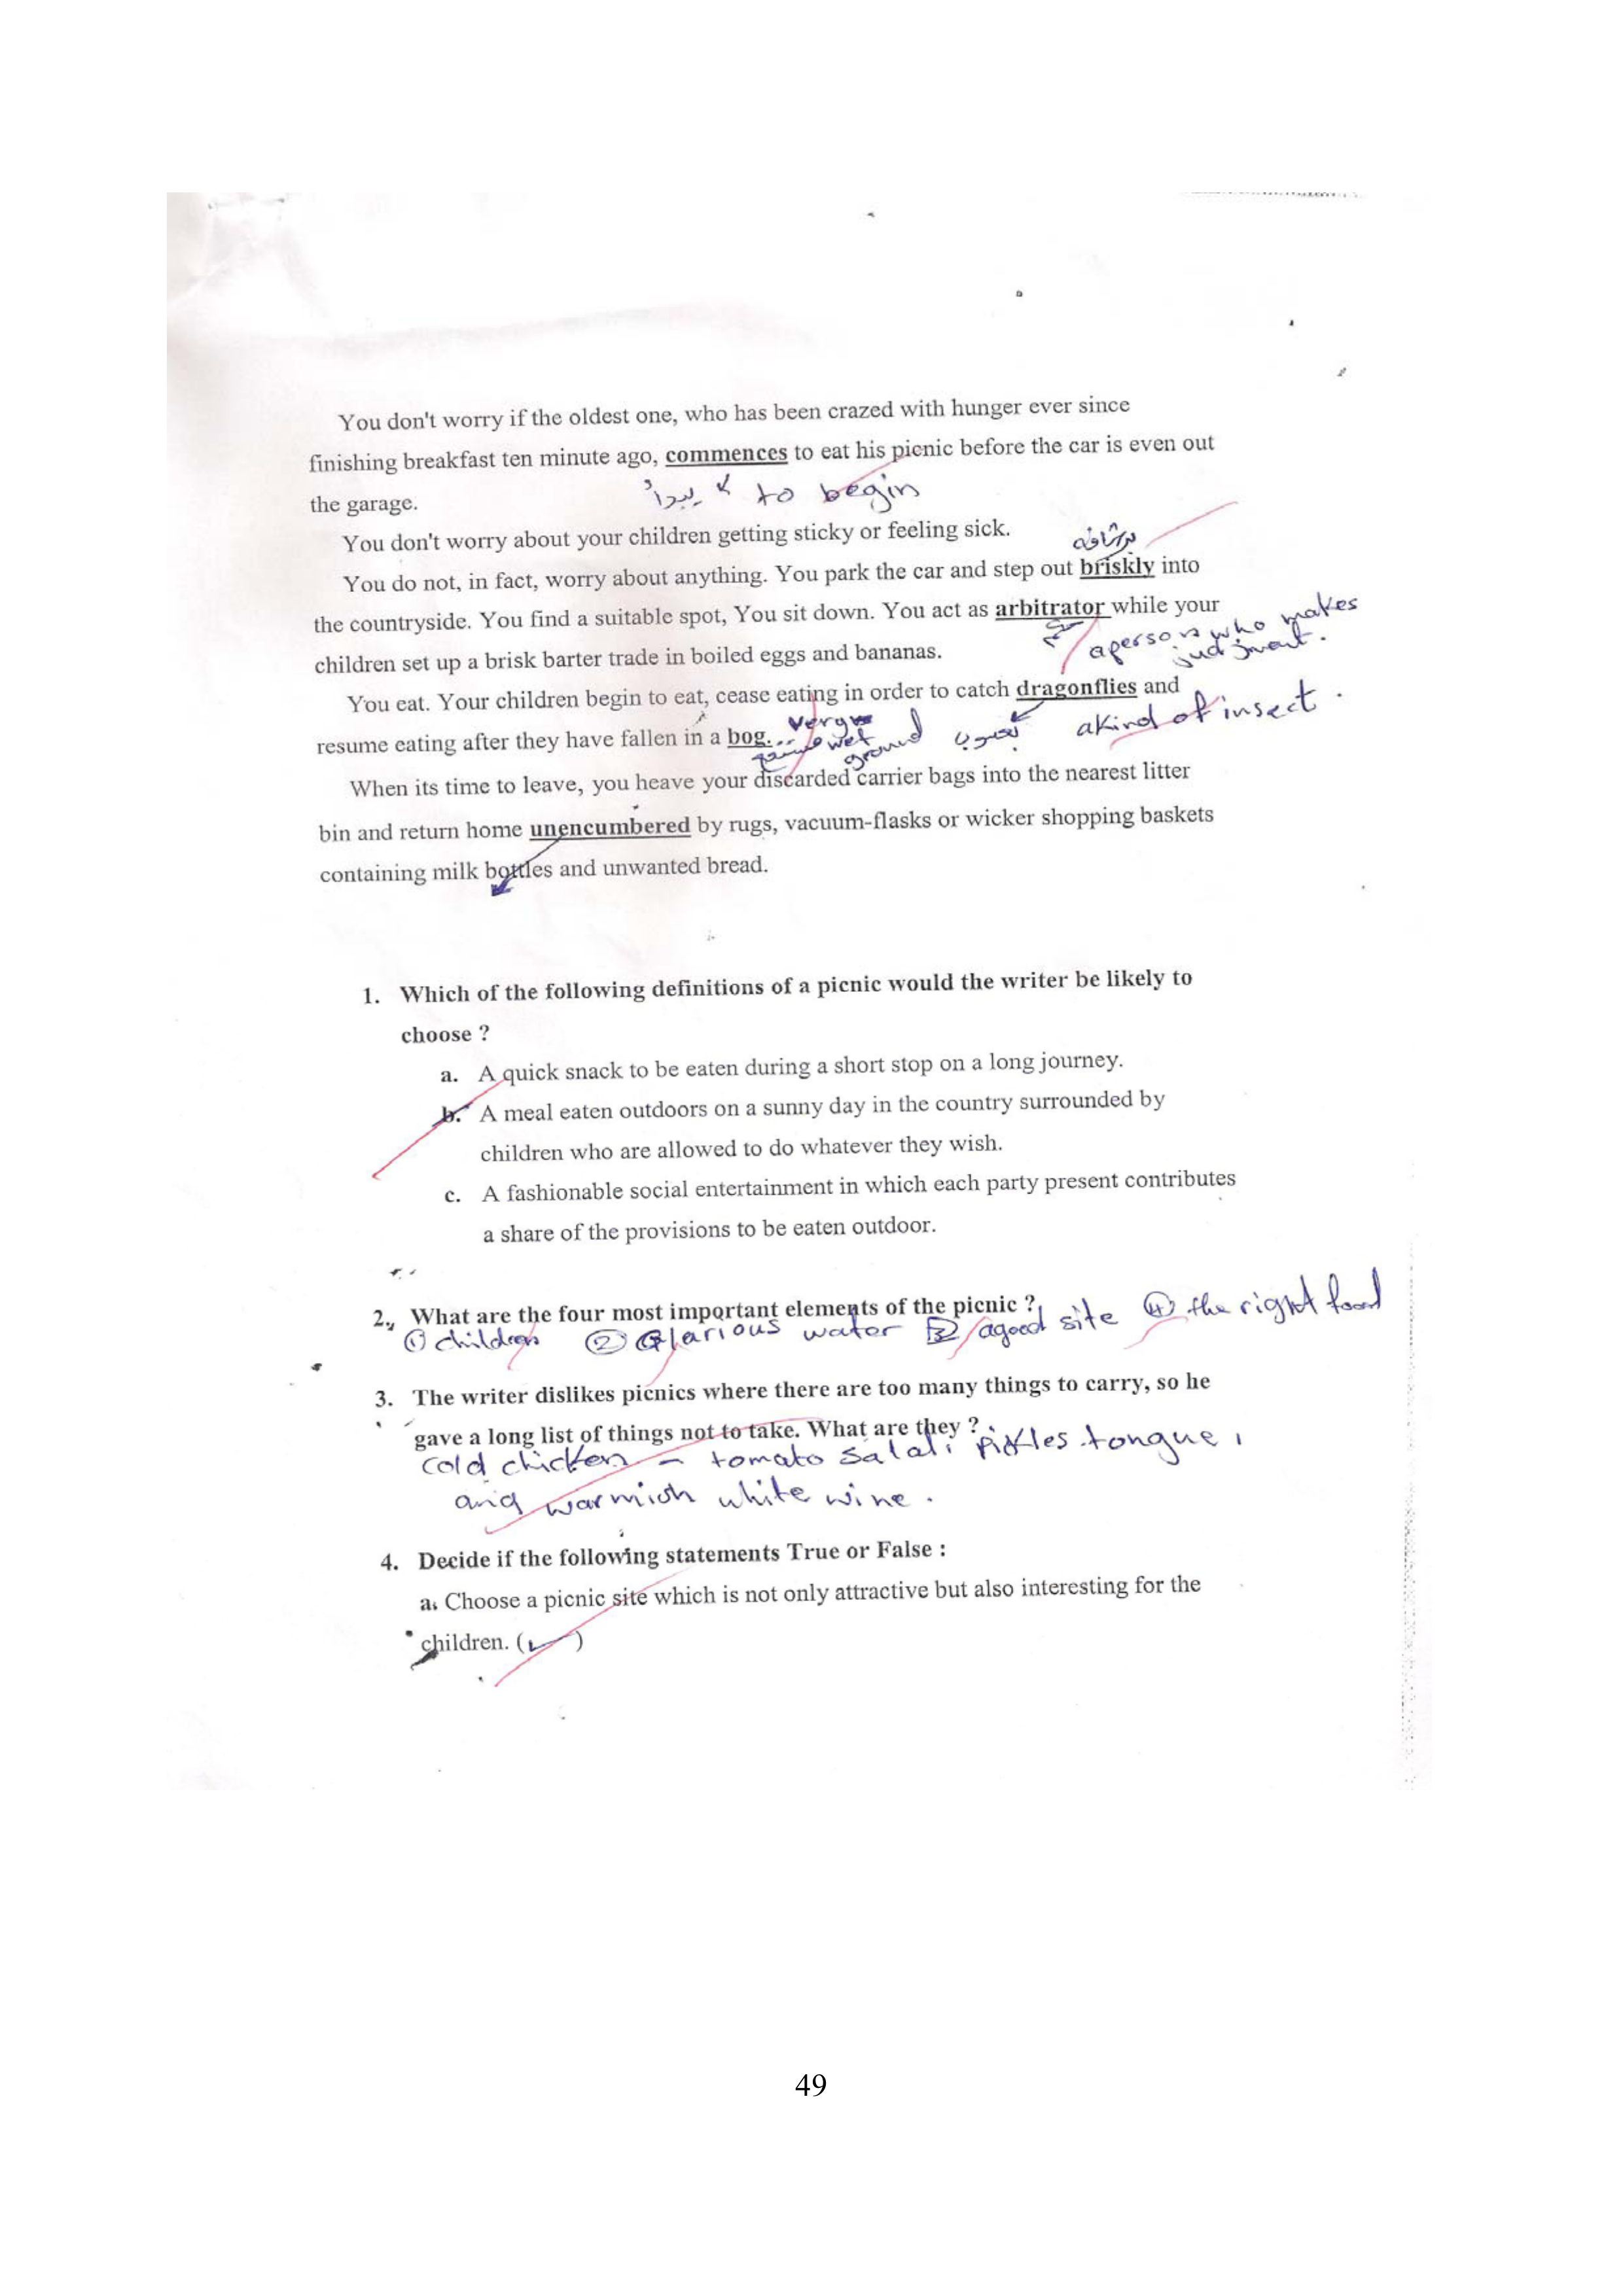 You don't worry if the oldest one, who has been crazed with hunger ever since
finishing breakfast ten minute ago, commences to eat his picnic before the car is even out
the garage.
يبدأ to begin
You don't worry about your children getting sticky or feeling sick.
You do not, in fact, worry about anything. You park the car and step out briskly into
the countryside. You find a suitable spot, You sit down. You act as arbitrator while your
a person who makes
judgment.
children set up a brisk barter trade in boiled eggs and bananas.
You eat. Your children begin to eat, cease eating in order to catch dragonflies and
a kind of insect.
resume eating after they have fallen in a bog...
very
wet
ground
When its time to leave, you heave your discarded carrier bags into the nearest litter
bin and return home unencumbered by rugs, vacuum-flasks or wicker shopping baskets
containing milk bottles and unwanted bread.
1. Which of the following definitions of a picnic would the writer be likely to
choose ?
a. A quick snack to be eaten during a short stop on a long journey.
b. A meal eaten outdoors on a sunny day in the country surrounded by
children who are allowed to do whatever they wish.
c. A fashionable social entertainment in which each party present contributes
a share of the provisions to be eaten outdoor.
2. What are the four most important elements of the picnic ?
① children ② Glarious water 3 a good site ④ the right food
3. The writer dislikes picnics where there are too many things to carry, so he
gave a long list of things not to take. What are they ?
cold chicken - tomato salad, pickles tongue,
and warmish white wine.
4. Decide if the following statements True or False :
a. Choose a picnic site which is not only attractive but also interesting for the
children. (✓)
49